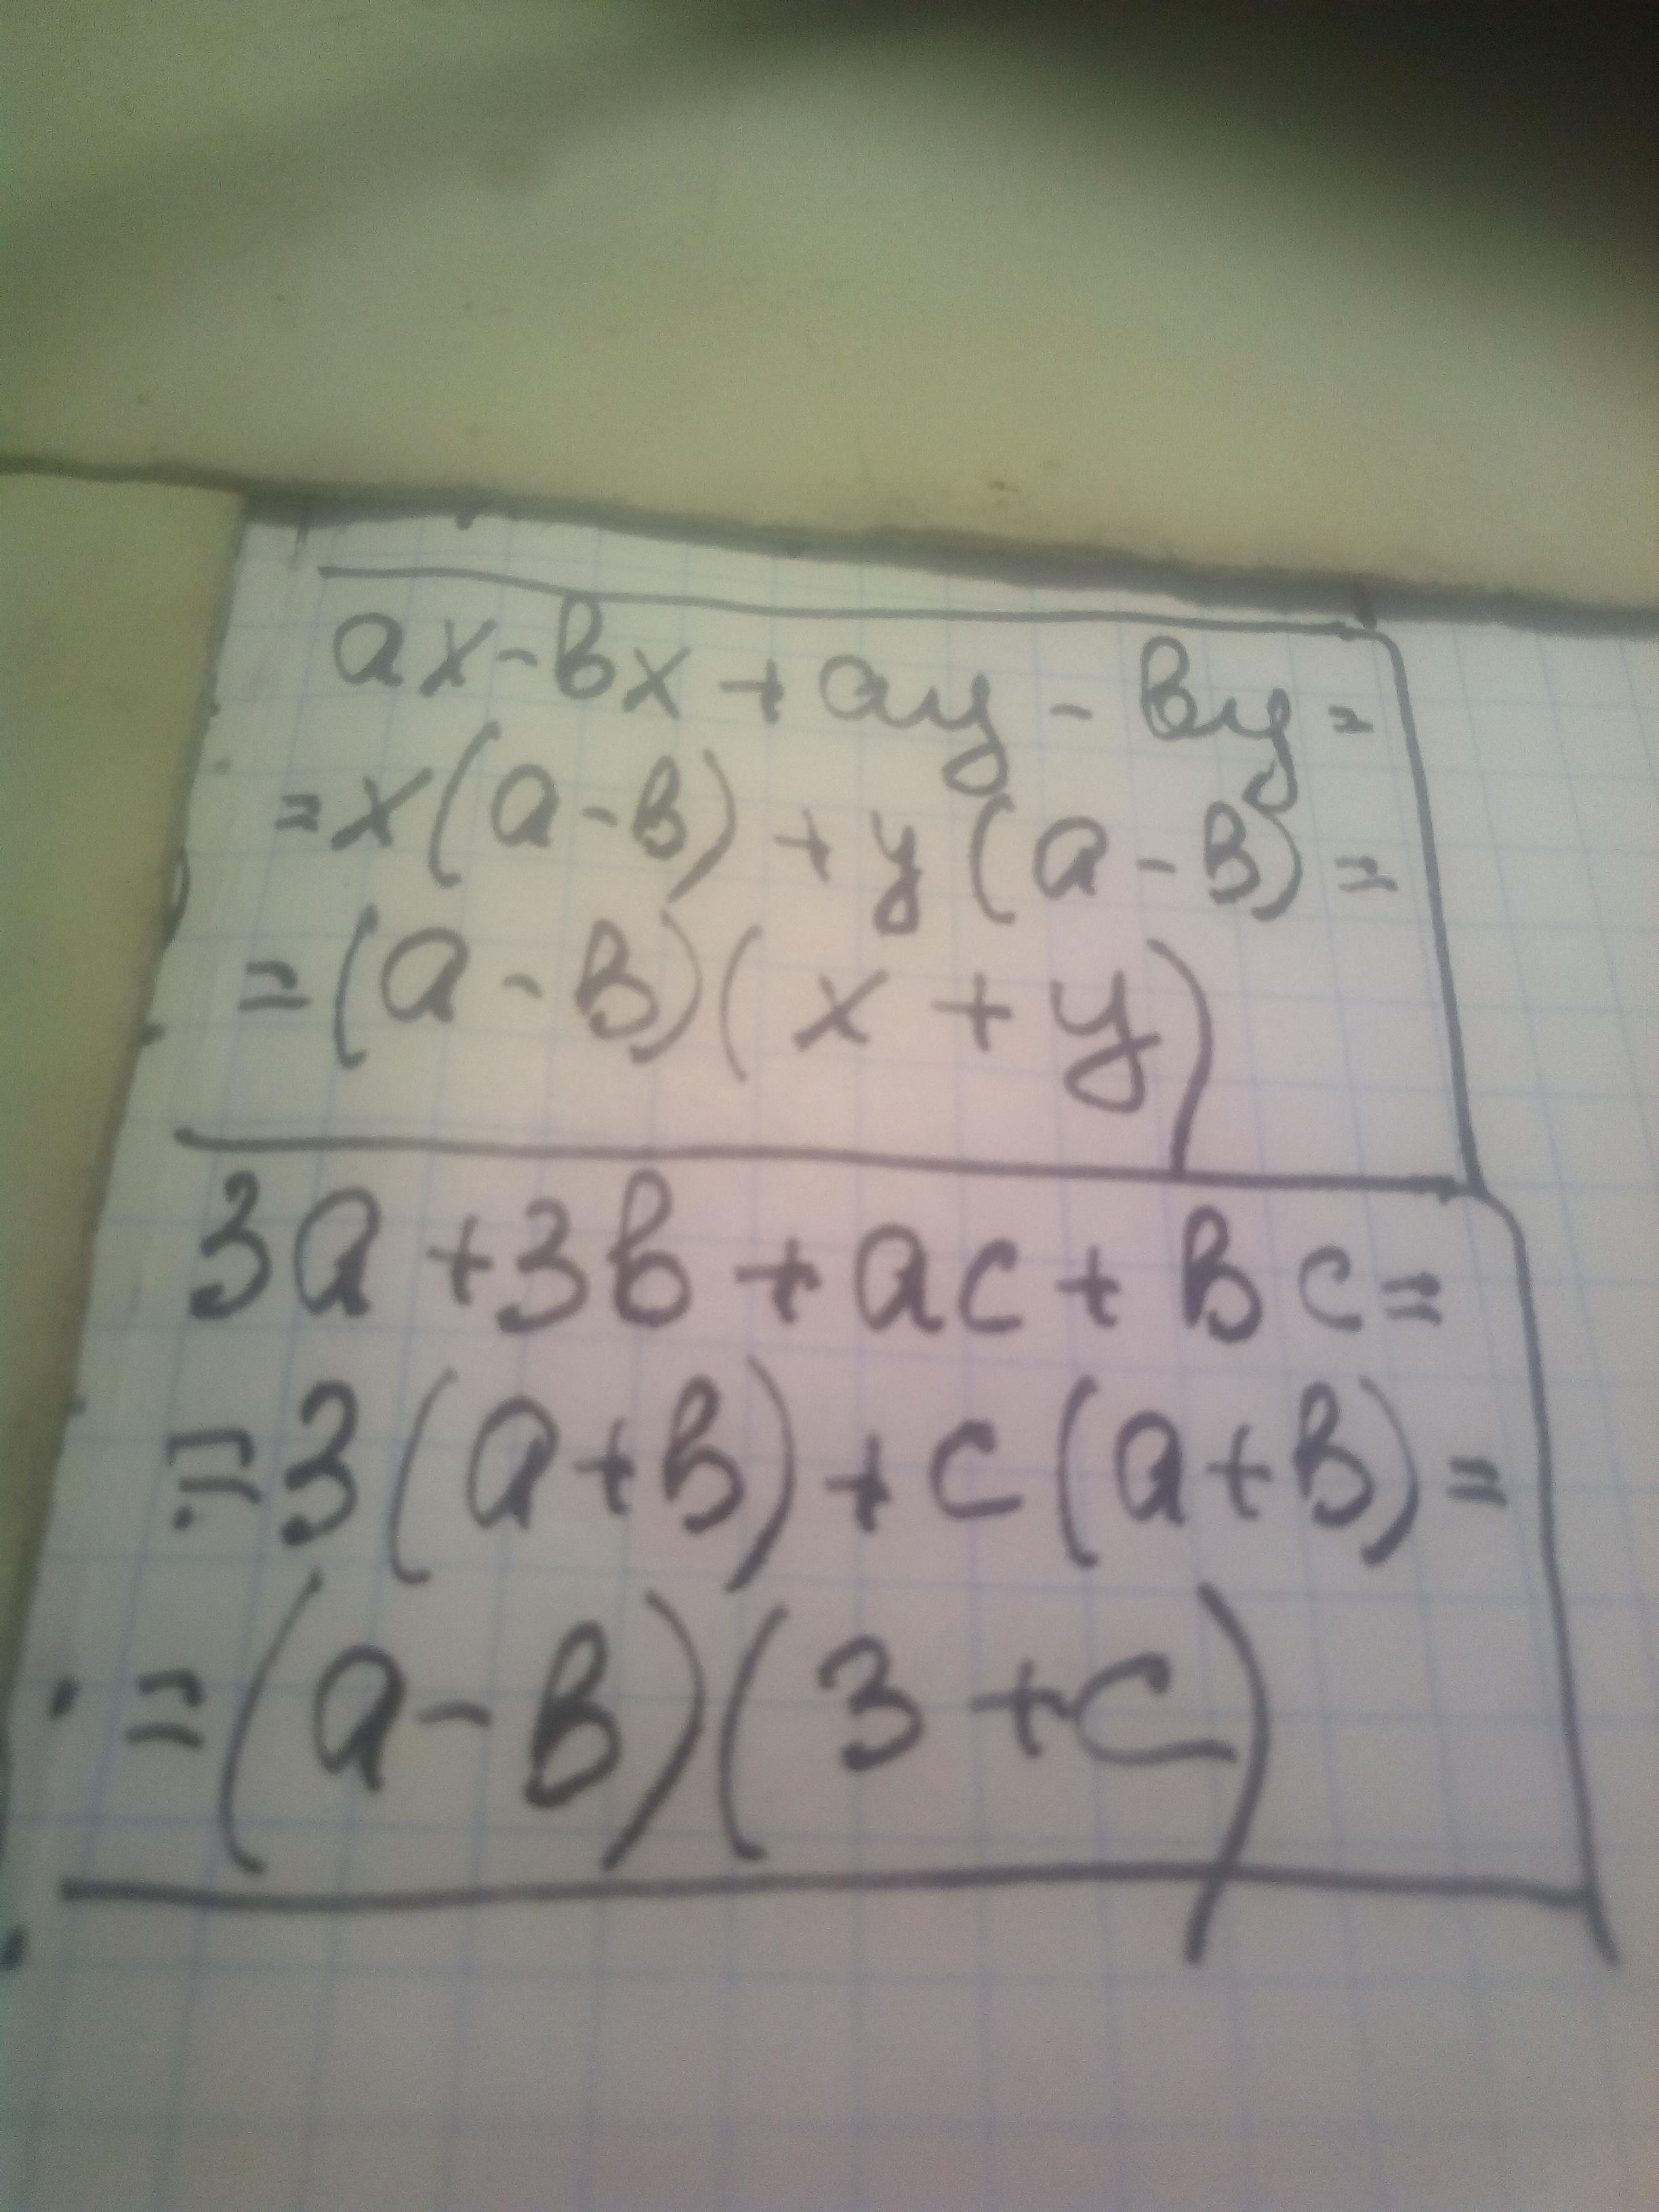 ax-bx+ay-by=
=x(a-b)+y(a-b)=
=(a-b)(x+y)
3a+3b+ac+bc=
=3(a+b)+c(a+b)=
=(a-b)(3+c)